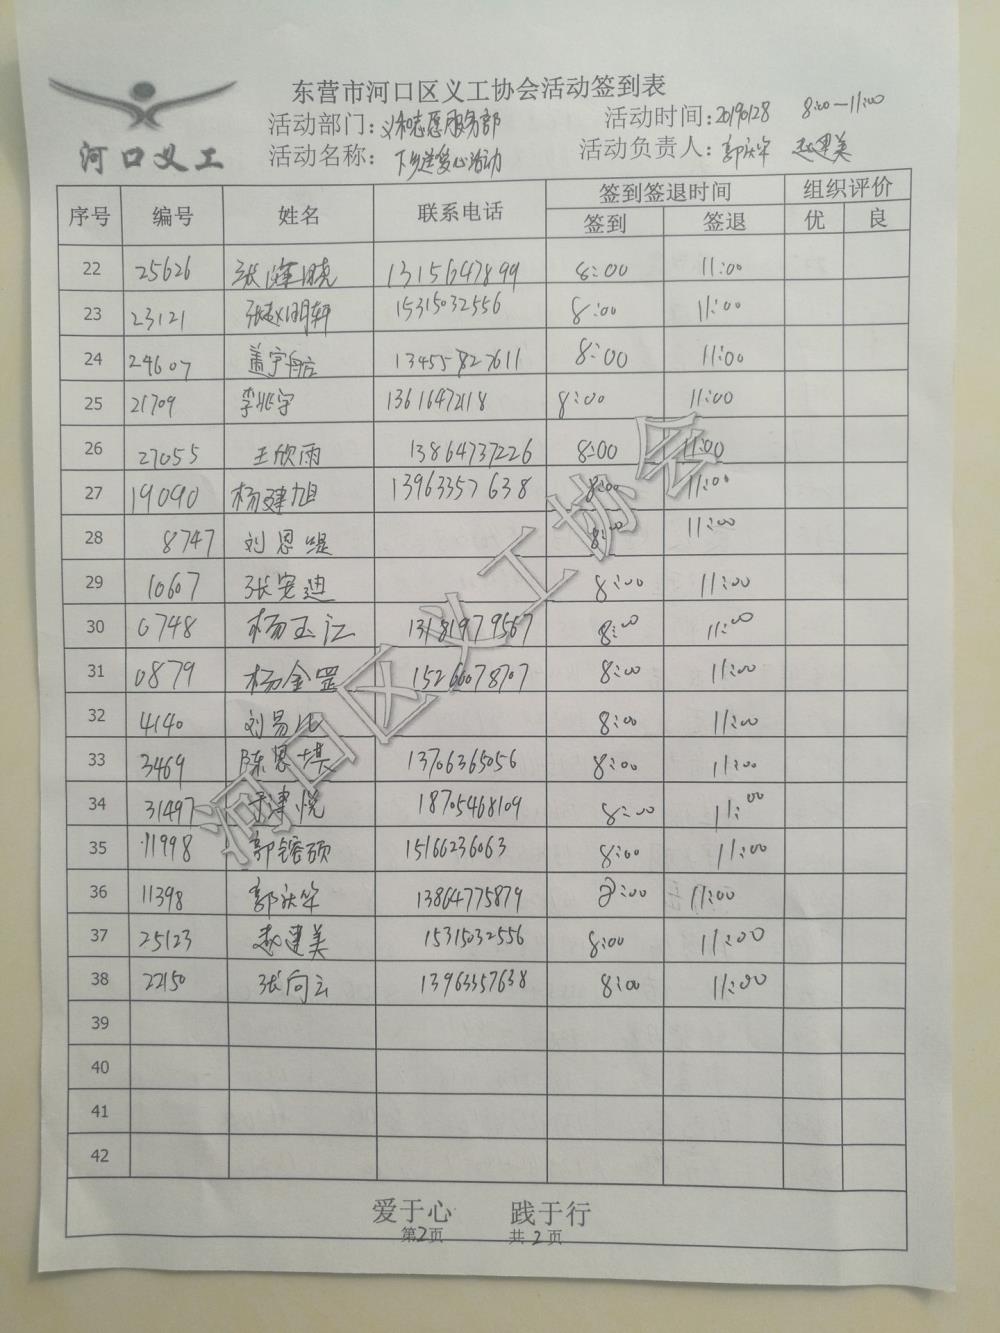 东营市河口区义工协会活动签到表
活动部门：义和志愿服务部 活动时间：20190128 8:00—11:00
河口义工
活动名称：下乡送爱心活动 活动负责人：郭庆华 赵建美
序号 编号 姓名 联系电话 签到签退时间 组织评价
签到 签退 优 良
22 25626 13156447899 8:00 11:00
23 23121 张赵明轩 15315032556 8:00 11:00
24 24607 盖宇航 13455827611 8:00 11:00
25 21709 李兆宇 13616472118 8:00 11:00
26 27055 王欣雨 13864737226 8:00 11:00
27 19090 杨建旭 13963357638 8:00 11:00
28 8747 刘恩 8:00 11:00
29 10607 张宪迪 8:00 11:00
30 0748 杨玉江 13181979567 8:00 11:00
31 0879 杨金罡 15266078707 8:00 11:00
32 4140 刘易 8:00 11:00
33 3469 陈恩堪 13706365056 8:00 11:00
34 31497 于津悦 18705468109 8:00 11:00
35 11998 郭镕硕 15166236063 8:00 11:00
36 11398 郭庆华 13864775879 8:00 11:00
37 25123 赵建美 15315032556 8:00 11:00
38 22150 张向云 13963357638 8:00 11:00
39
40
41
42
爱于心 践于行
第2页 共2页
河口区义工协会